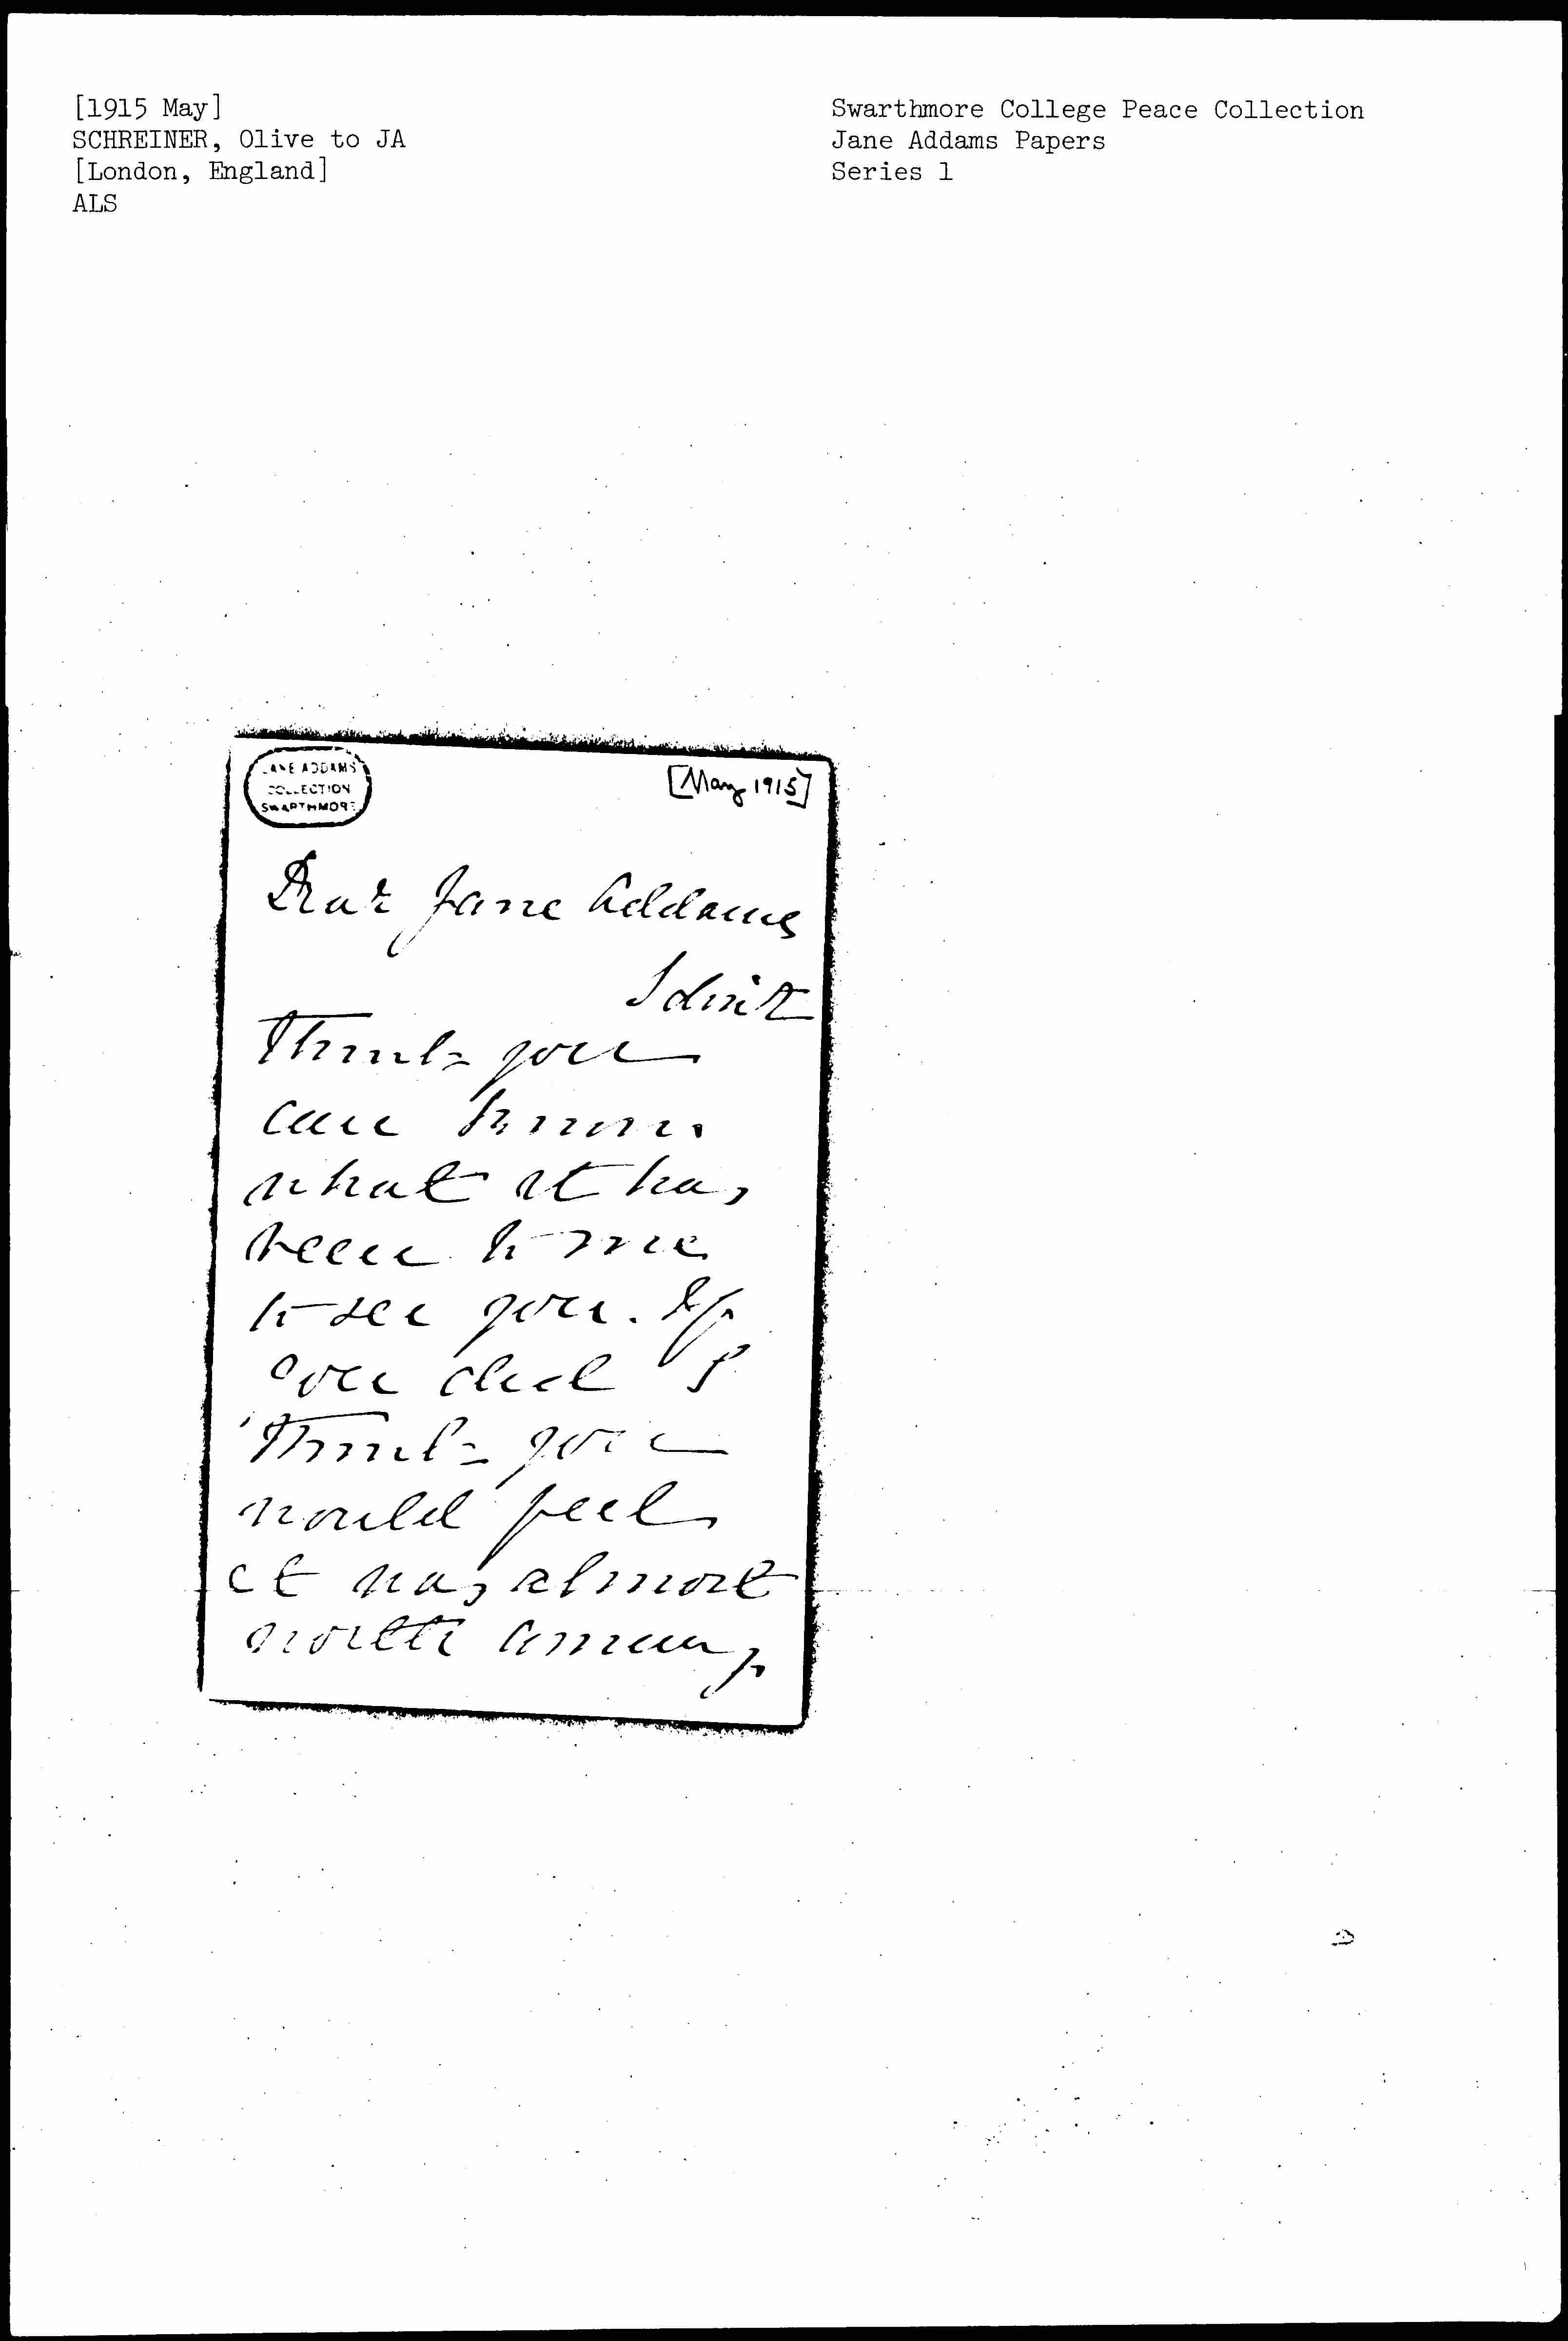 [1915 May]
SCHREINER, Olive to JA
[London, England]
ALS
Swarthmore College Peace Collection
Jane Addams Papers
Series 1
JANE ADDAMS
COLLECTION
SWARTHMORE
[May 1915]
Dear Jane Addams
I don't
think you
can know
what it has
been to me
to see you. If
you did I
think you
would feel
it was almost
worth coming